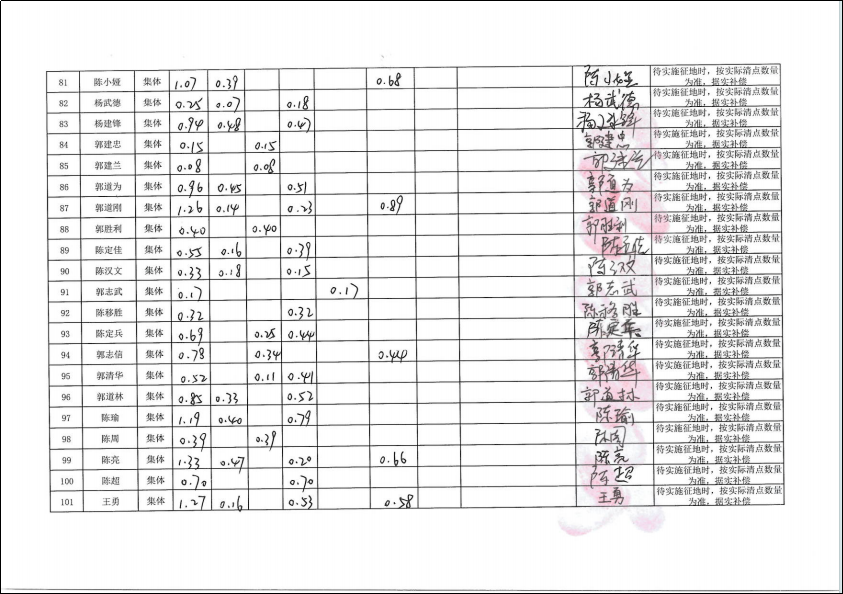 81 陈小娅 集体 1.07 0.39 0.68 陈小娅 待实施征地时，按实际清点数量
为准，据实补偿
82 杨武德 集体 0.25 0.07 0.18 杨武德 待实施征地时，按实际清点数量
为准，据实补偿
83 杨建锋 集体 0.94 0.48 0.47 杨建锋 待实施征地时，按实际清点数量
为准，据实补偿
84 郭建忠 集体 0.15 0.15 郭建忠 待实施征地时，按实际清点数量
为准，据实补偿
85 郭建兰 集体 0.08 0.08 郭建兰 待实施征地时，按实际清点数量
为准，据实补偿
86 郭道为 集体 0.96 0.45 0.51 郭道为 待实施征地时，按实际清点数量
为准，据实补偿
87 郭道刚 集体 1.26 0.14 0.23 0.89 郭道刚 待实施征地时，按实际清点数量
为准，据实补偿
88 郭胜利 集体 0.40 0.40 郭胜利 待实施征地时，按实际清点数量
为准，据实补偿
89 陈定佳 集体 0.55 0.16 0.39 陈定佳 待实施征地时，按实际清点数量
为准，据实补偿
90 陈汉文 集体 0.33 0.18 0.15 陈汉文 待实施征地时，按实际清点数量
为准，据实补偿
91 郭志武 集体 0.17 0.17 郭志武 待实施征地时，按实际清点数量
为准，据实补偿
92 陈移胜 集体 0.32 0.32 陈移胜 待实施征地时，按实际清点数量
为准，据实补偿
93 陈定兵 集体 0.69 0.25 0.44 陈定 待实施征地时，按实际清点数量
为准，据实补偿
94 郭志信 集体 0.78 0.34 0.44 郭清华 待实施征地时，按实际清点数量
为准，据实补偿
95 郭清华 集体 0.52 0.11 0.41 郭清华 待实施征地时，按实际清点数量
为准，据实补偿
96 郭道林 集体 0.85 0.33 0.52 郭道林 待实施征地时，按实际清点数量
为准，据实补偿
97 陈瑜 集体 1.19 0.40 0.79 陈瑜 待实施征地时，按实际清点数量
为准，据实补偿
98 陈周 集体 0.39 0.39 陈周 待实施征地时，按实际清点数量
为准，据实补偿
99 陈亮 集体 1.33 0.47 0.20 0.66 陈亮 待实施征地时，按实际清点数量
为准，据实补偿
100 陈超 集体 0.70 0.70 陈超 待实施征地时，按实际清点数量
为准，据实补偿
101 王勇 集体 1.27 0.16 0.53 0.58 王勇 待实施征地时，按实际清点数量
为准，据实补偿